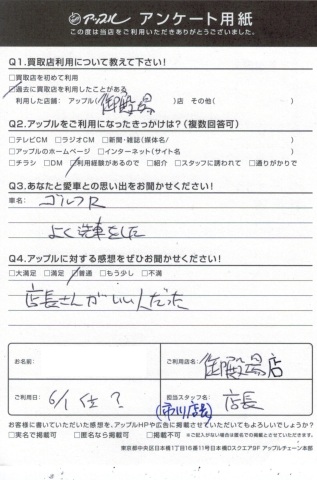 アップル アンケート用紙
この度は当店をご利用いただきありがとうございました。
Q1.買取店利用について教えて下さい!
□買取店を初めて利用
□過去に買取店を利用したことがある
利用した店舗: アップル(御殿場)店 その他( )
Q2.アップルをご利用になったきっかけは?(複数回答可)
□テレビCM □ラジオCM □新聞・雑誌(媒体名/ )
□アップルのホームページ □インターネット(サイト名 )
□チラシ □DM □利用経験があるので □紹介 □スタッフに誘われて □通りがかりで
Q3.あなたと愛車との思い出をお聞かせください!
車名: ゴルフR
よく洗車をした
Q4.アップルに対する感想をぜひお聞かせください!
□大満足 □満足 □普通 □もう少し □不満
店長さんがいい人だった
お名前:
ご利用店名: 御殿場店
ご利用日: 6/1
?
担当スタッフ名: 店長
(市川店長)
お客様に書いていただいた感想を、アップルHPや広告に掲載させていただいてもよろしいでしょうか?
□実名で掲載可 □匿名なら掲載可 □掲載不可 ※ご記入がない場合は匿名での掲載とさせていただきます。
東京都中央区日本橋1丁目16番11号日本橋Dスクエア9F アップルチェーン本部